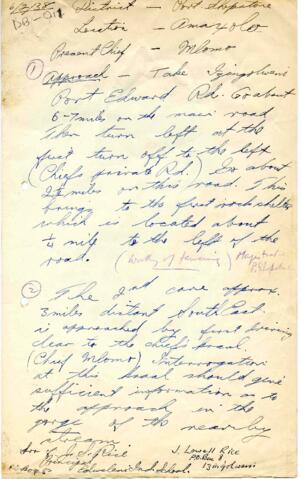 6/3/38 District - Port Shepstone
DB-011
Location - Amaxolo
Present Chief - Mlomo
① Approach - Take Izingolweni
Port Edward Rd. Go about
6-7 miles on the main road
Then turn left at the
first turn off to the left
(Chiefs private Rd.) Go about
miles on this road. This
brings to the first rock shelter
which is located about
¼ mile to the left of the
road. (Worthy of ) Magistrate
② The 2nd cave approx.
3 miles distant South East
is approached by first driving
clear to the chief's kraal
(Chief Mlomo) Interrogation
at this kraal should give
sufficient information as to
the approach in the
gorge of the nearby
stream
J. Lowell Rice
Rice
Principal
PO Box 8
Izingolweni
PO Box 8